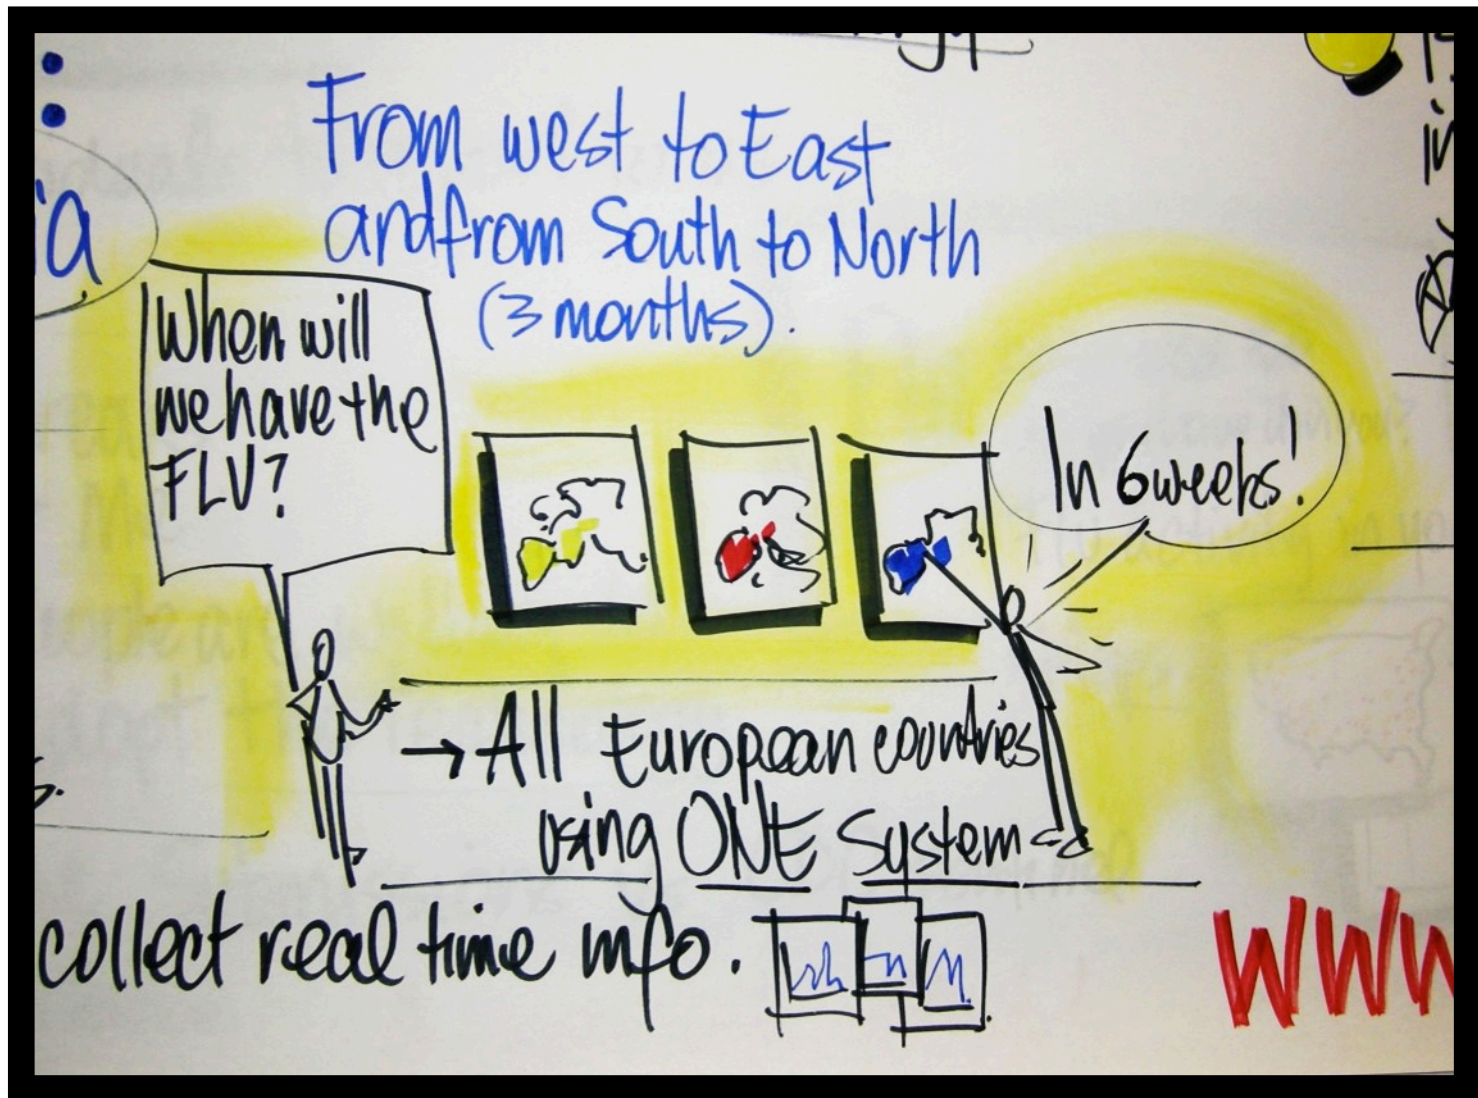 From west to East
and from South to North
(3 months).
When will
we have the
FLU?
In 6 weeks!
→ All European countries
using ONE System
collect real time info.
WWW